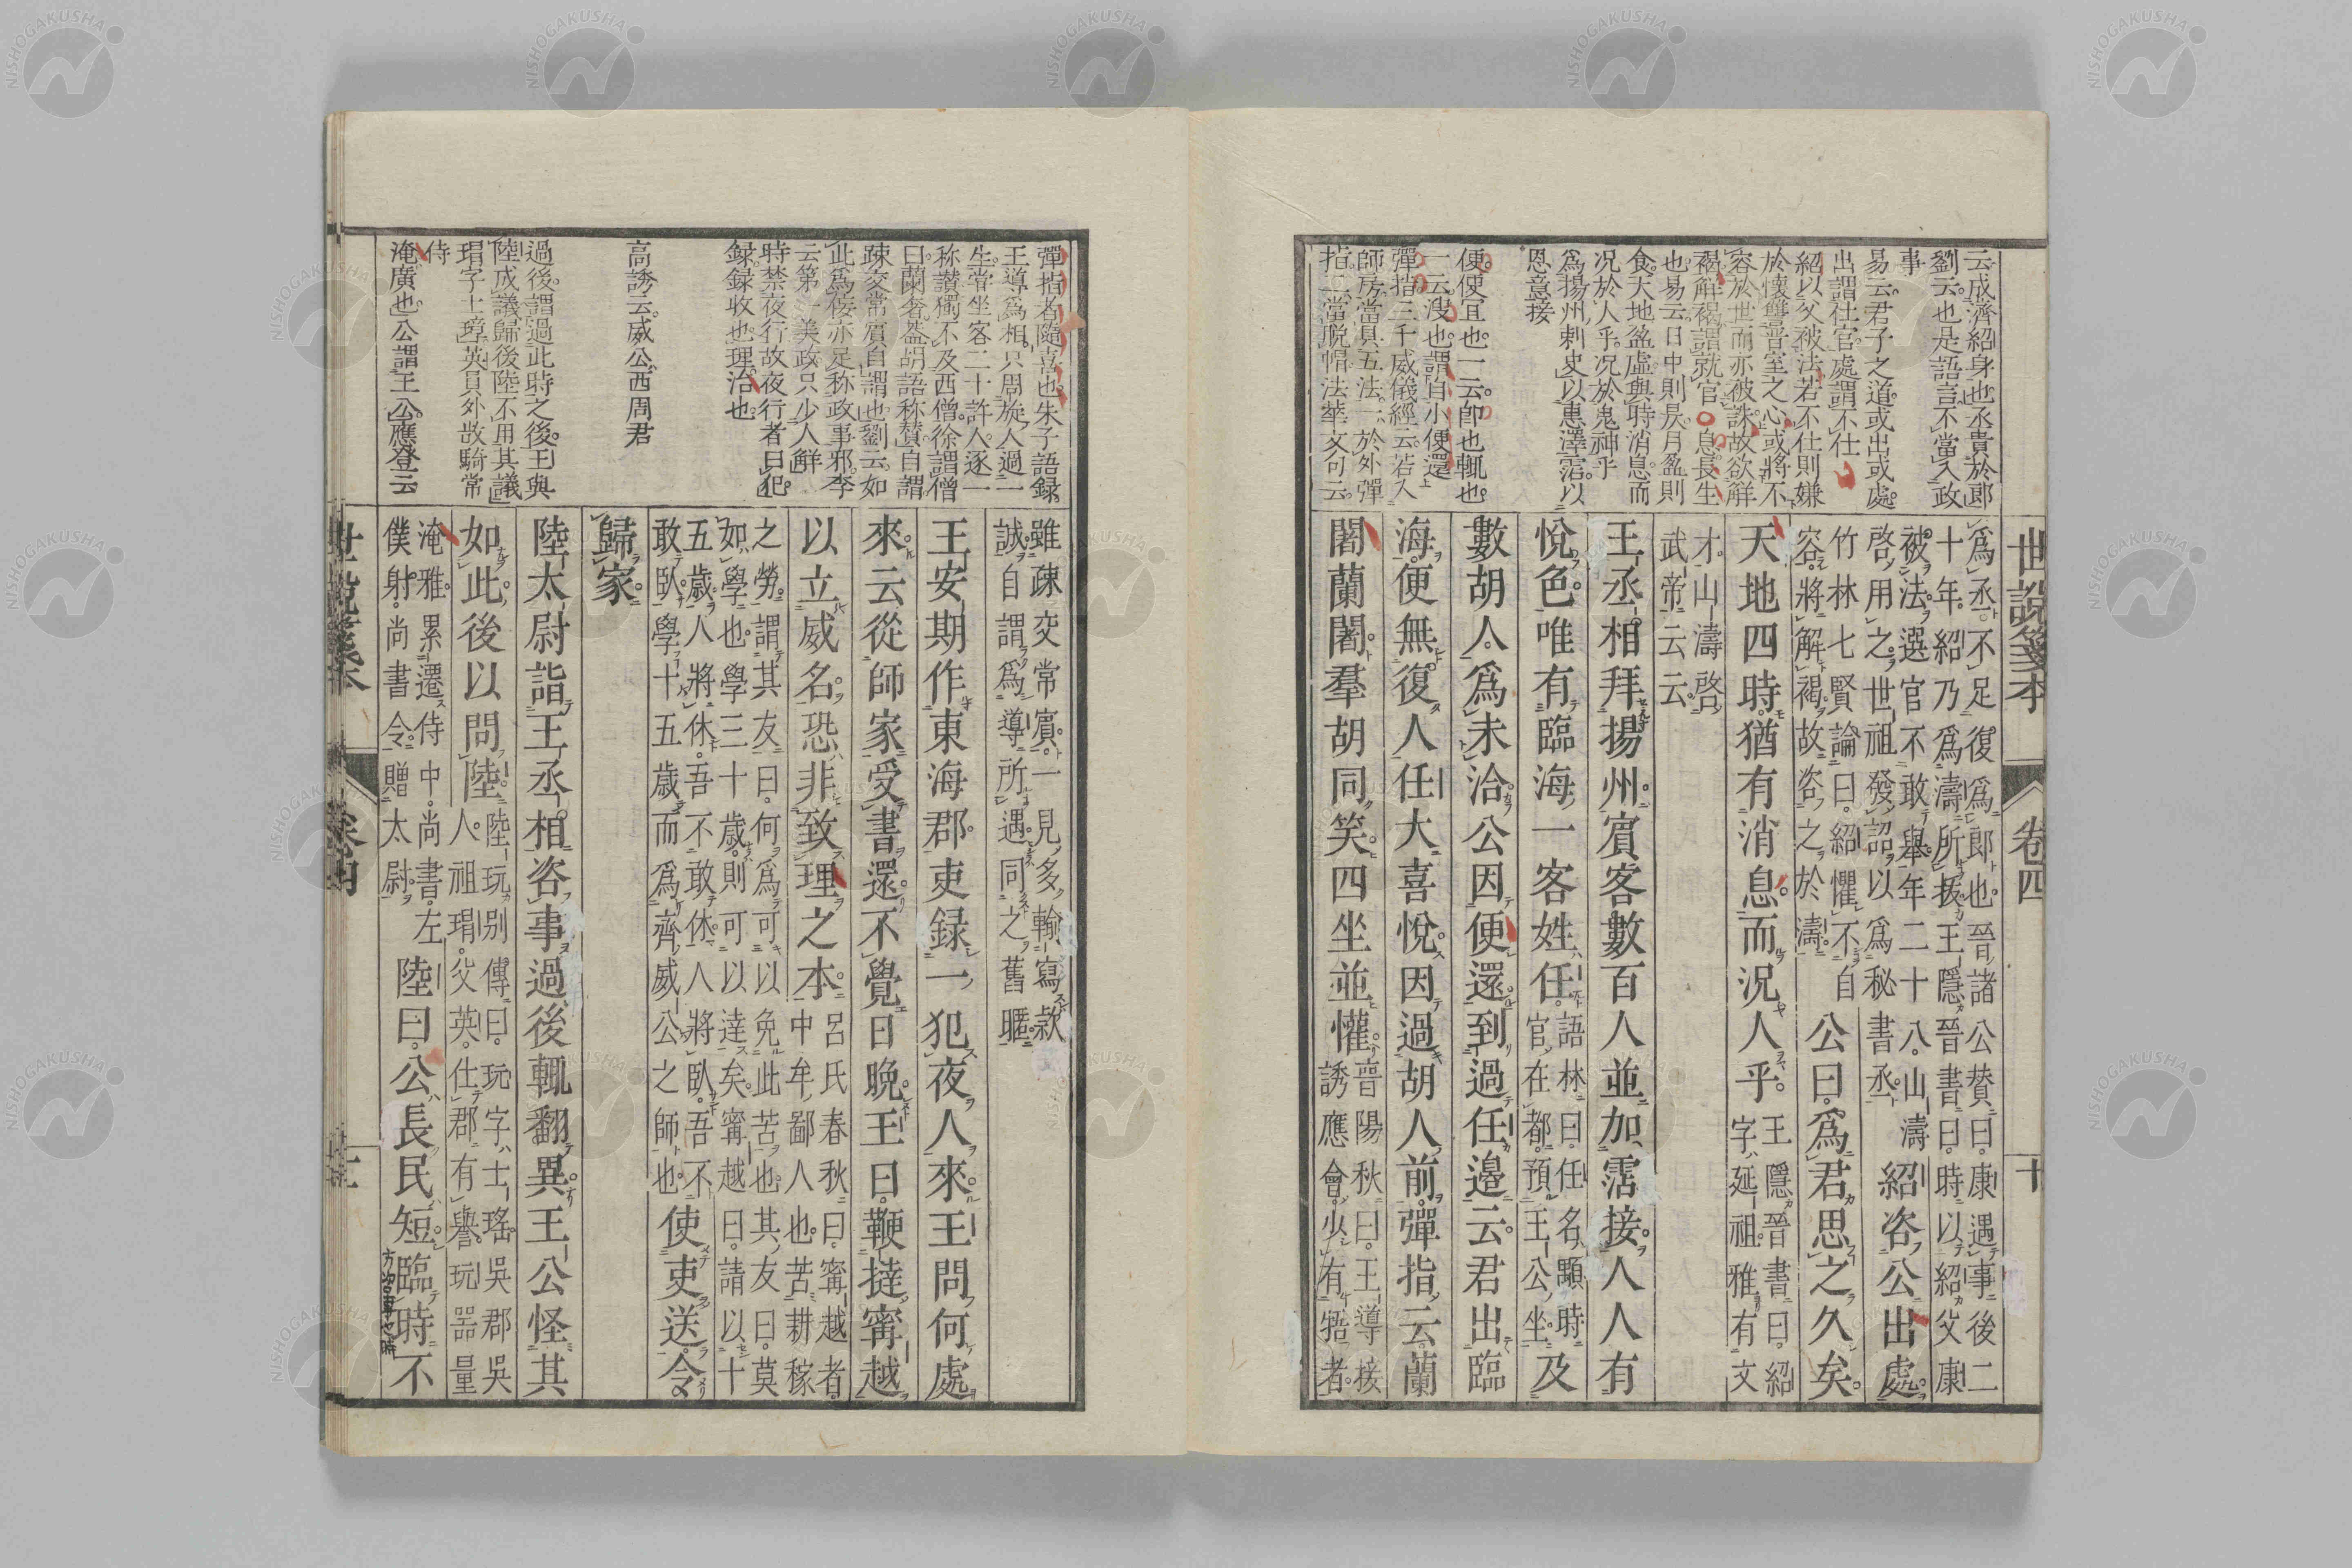 世說箋本 卷四 十
云成濟紹身也丞貴於郎
劉云也是語言不當入政
事
易云君子之道或出或處
出謂仕官處謂不仕
紹以父被法若不仕則嫌
於懷讐晉室之心或將不
容於世而亦被誅故欲解
褐解褐謂就官○息長生
也易云日中則昃月盈則
食天地盈虛與時消息而
況於人乎況於鬼神乎
爲揚州刺史以惠澤霑以
恩意接
便便宜也一云卽也輒也
一云溲也謂自小便還
彈指三千威儀經云若入
師房當具五法一於外彈
指二當脫帽法華文句云
爲丞不足復爲郎也晉諸公贊曰康遇事後二
十年紹乃爲濤所拔王隱晉書曰時以紹父康
被法選官不敢舉年二十八山濤
啓用之世祖發詔以爲秘書丞
紹咨公出處
竹林七賢論曰紹懼不自
容將解褐故咨之於濤
公曰爲君思之久矣
天地四時猶有消息而況人乎
王隱晉書曰紹
字延祖雅有文
才山濤啓
武帝云云
王丞相拜揚州賓客數百人並加霑接人人有
悅色唯有臨海一客姓任
語林曰任名顒時
官在都預王公坐
及
數胡人爲未洽公因便還到過任邊云君出臨
海便無復人任大喜悅因過胡人前彈指云蘭
闍蘭闍羣胡同笑四坐並懽
晉陽秋曰王導接
誘應會少有牾者
彈指者隨喜也朱子語録
王導爲相只周旋人過一
生當坐客二十許人逐一
称讃獨不及西僧徐謂僧
曰蘭奢蓋胡語称賛自謂
疎交常賓自謂也劉云如
此爲佞亦足称政事邪李
云第一美政只少人鮮
時禁夜行故夜行者曰犯
録録收也理治也
高誘云威公西周君
過後謂過此時之後王與
陸成議歸後陸不用其議
瑁字士璋英員外散騎常
侍
淹廣也公謂王公應登云
雖疎交常賓一見多輸寫款
誠自謂爲導所遇同之舊暱
王安期作東海郡吏録一犯夜人來王問何處
來云從師家受書還不覺日晩王曰鞭撻甯越
以立威名恐非致理之本
呂氏春秋曰甯越者
中牟鄙人也苦耕稼
之勞謂其友曰何爲可以免此苦也其友曰莫
如學也學三十歲則可以達矣甯越曰請以十
五歲人將休吾不敢休人將臥吾不
敢臥學十五歲而爲齊威公之師也
使吏送令
歸家
陸太尉詣王丞相咨事過後輒翻異王公怪其
如此後以問陸
陸玩別傳曰玩字士瑤吳郡吳
人祖瑁父英仕郡有譽玩器量
淹雅累遷侍中尚書左
僕射尚書令贈太尉
陸曰公長民短臨時不
世說箋本 卷四